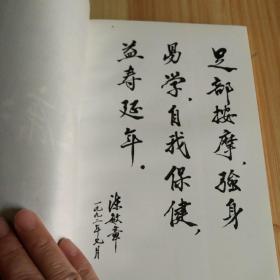 足部按摩，强身
易学，自我保健，
益寿延年。
涂敏章
一九九二年元月